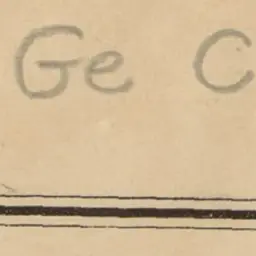 Ge C